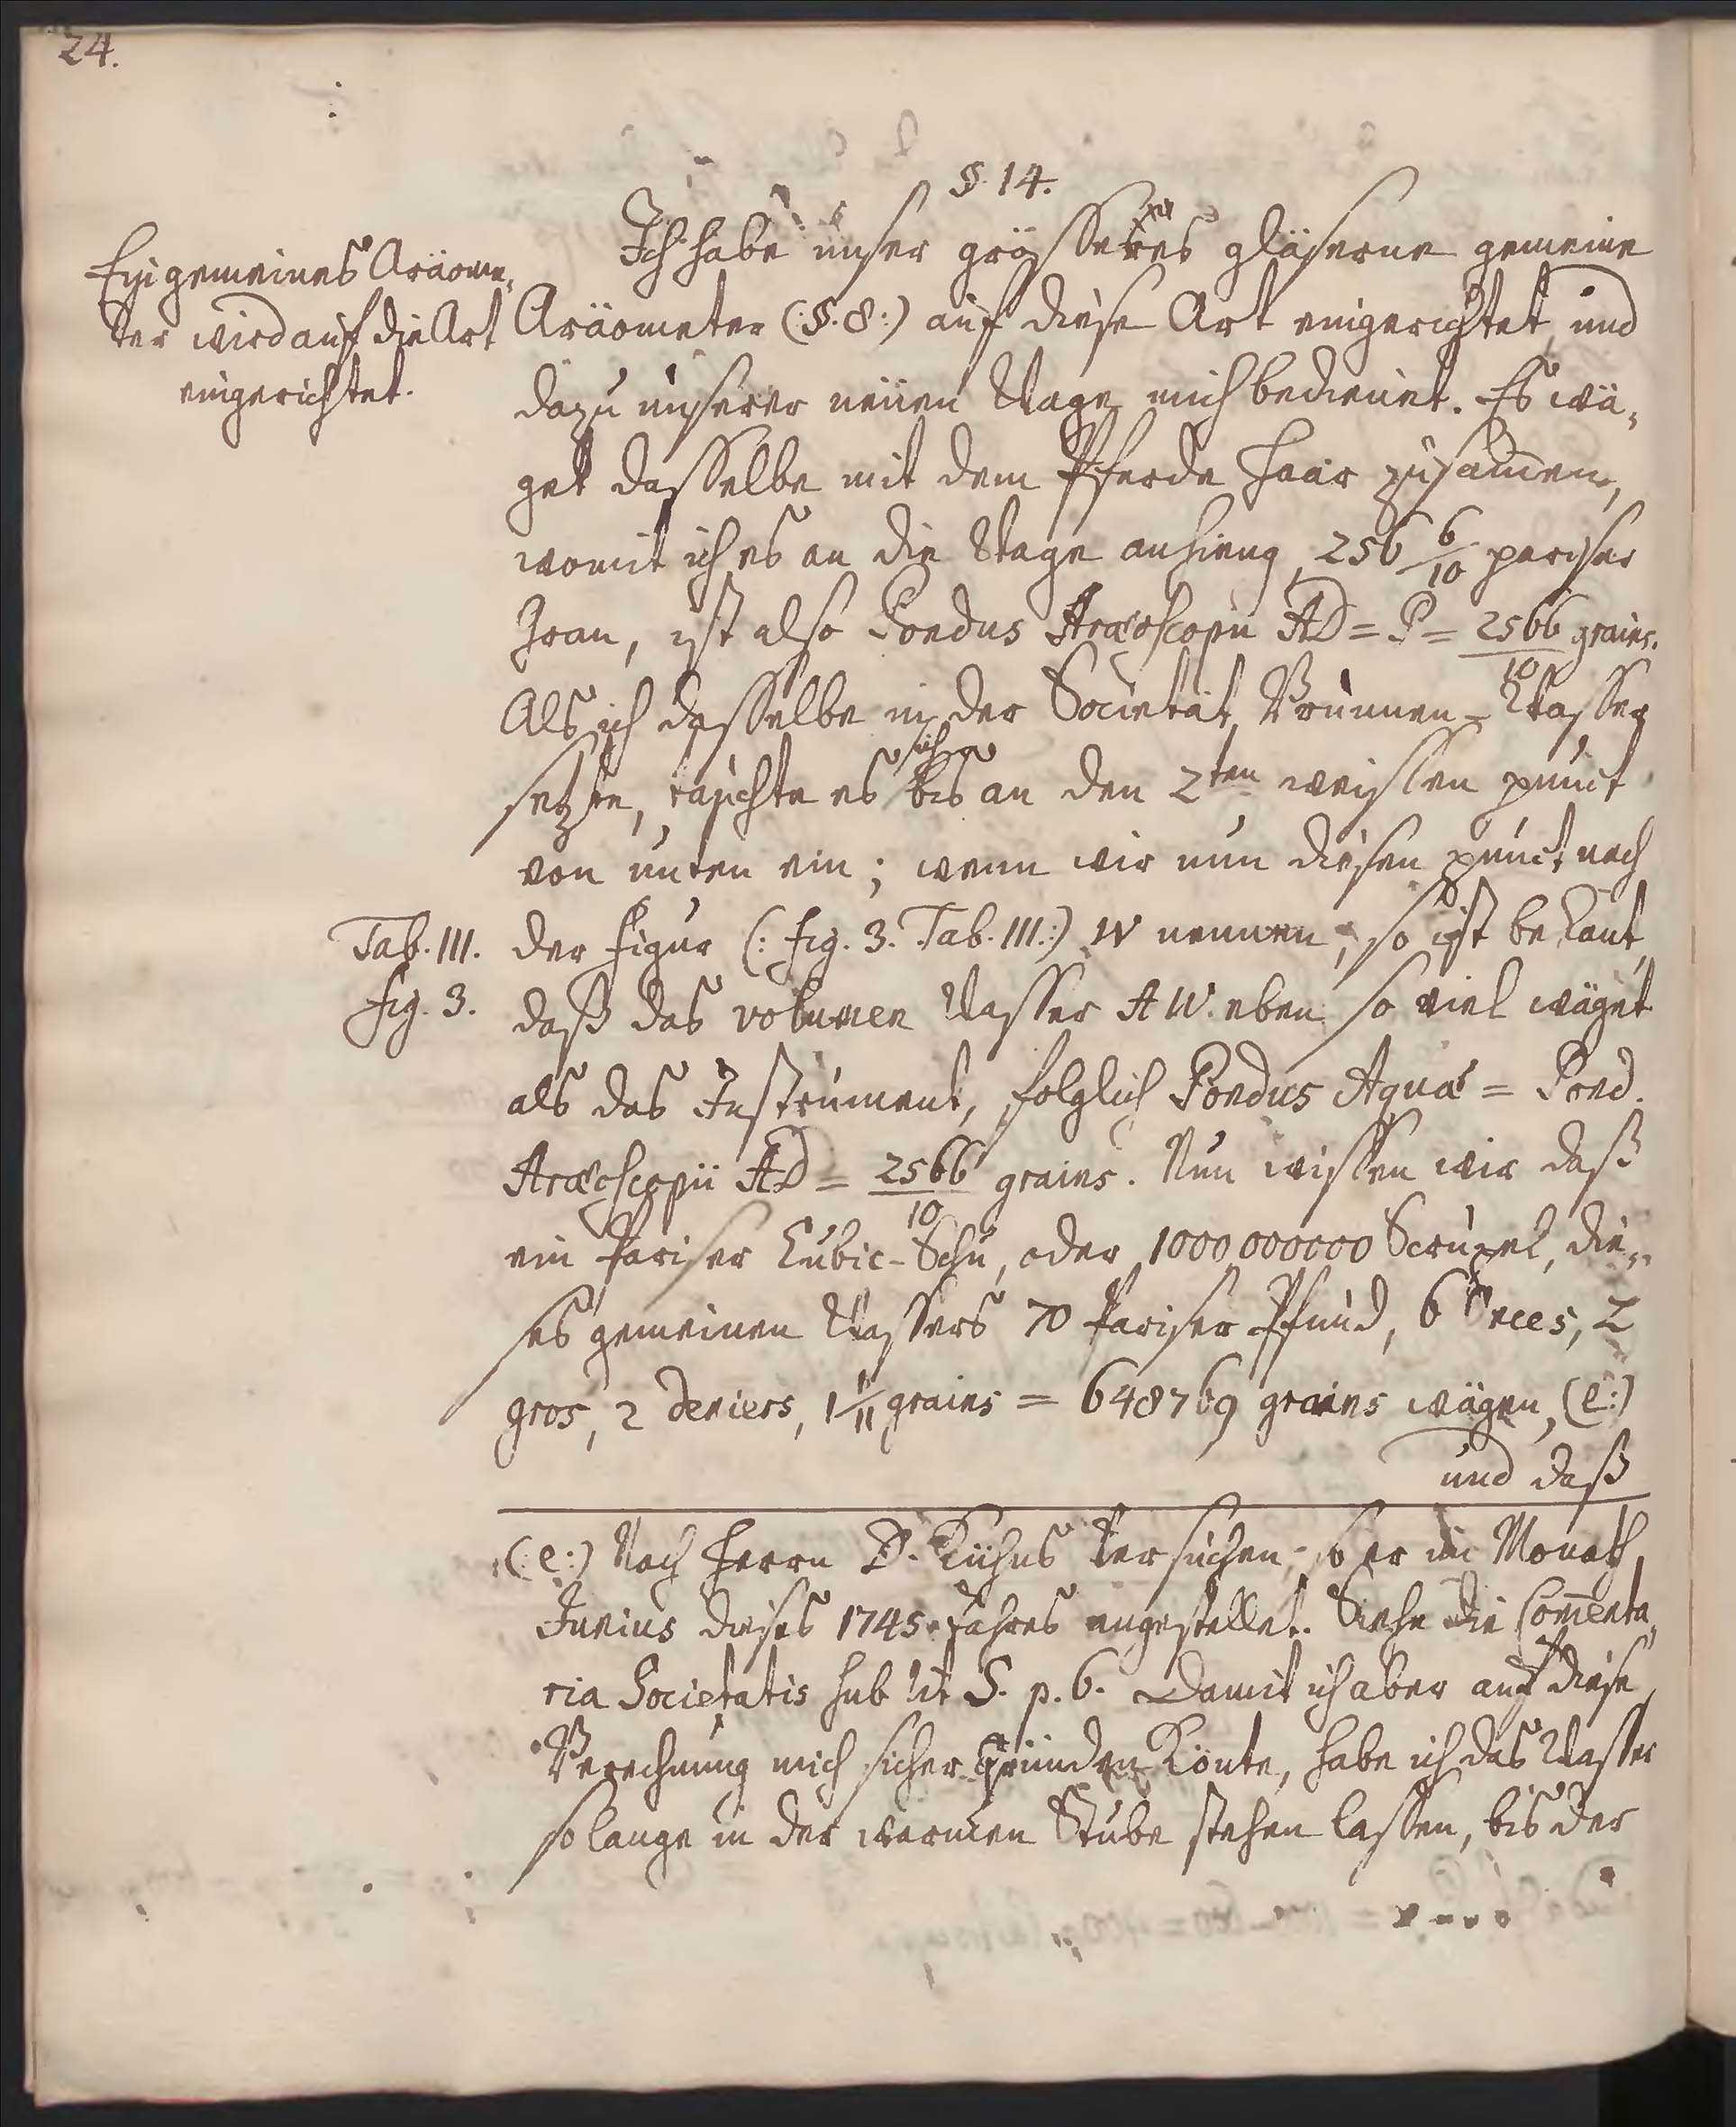 24.
§. 14.
Ich habe unser grösseres gläserne gemeine
Ein gemeines Aräome-
ter wird auf die Art
eingerichtet.
Aräometer (:§. 8:) auf diese Art eingerichtet, und
dazu unserer neuen Wage mich bedienet. Es wä-
get dasselbe mit dem Pferde Haar zusamen,
womit ich es an die Wage anhieng, 256 6/10 pariser
Gran, ist also Pondus Aræoscopii AD = P = 2566/10 grains.
Als ich dasselbe in der Societät Brunnen-Wasser
setzte, tauchte es sich bis an den 2ten weissen punct
von unten ein; wenn wir nun diesen punct nach
Tab. III.
fig. 3.
der Figur (: fig. 3. Tab. III.:) W nennen, so ist bekant,
daß das volumen Wasser AW. eben so viel wäget
als das Instrument, folglich Pondus Aquæ = Pond.
Aræoscopii AD = 2566/10 grains. Nun wissen wir daß
ein Pariser Cubic-Schu, oder 1000,000000 Scrupel, die-
ses gemeinen Wassers 70 Pariser Pfund, 6 Onces, 2
gros, 2 deniers, 1 1/11 grains = 648769 grains wägen, (e:)
und daß
(:e:) Nach Herrn D. Kühns Versuchen, so er im Monath
Junius dieses 1745. Jahres angestellet. Siehe die Com̄enta-
ria Societatis sub lit S. p. 6. Damit ich aber auf diese
Berechnung mich sicher gründen könte, habe ich das Wasser
so lange in der warmen Stube stehen lassen, bis der